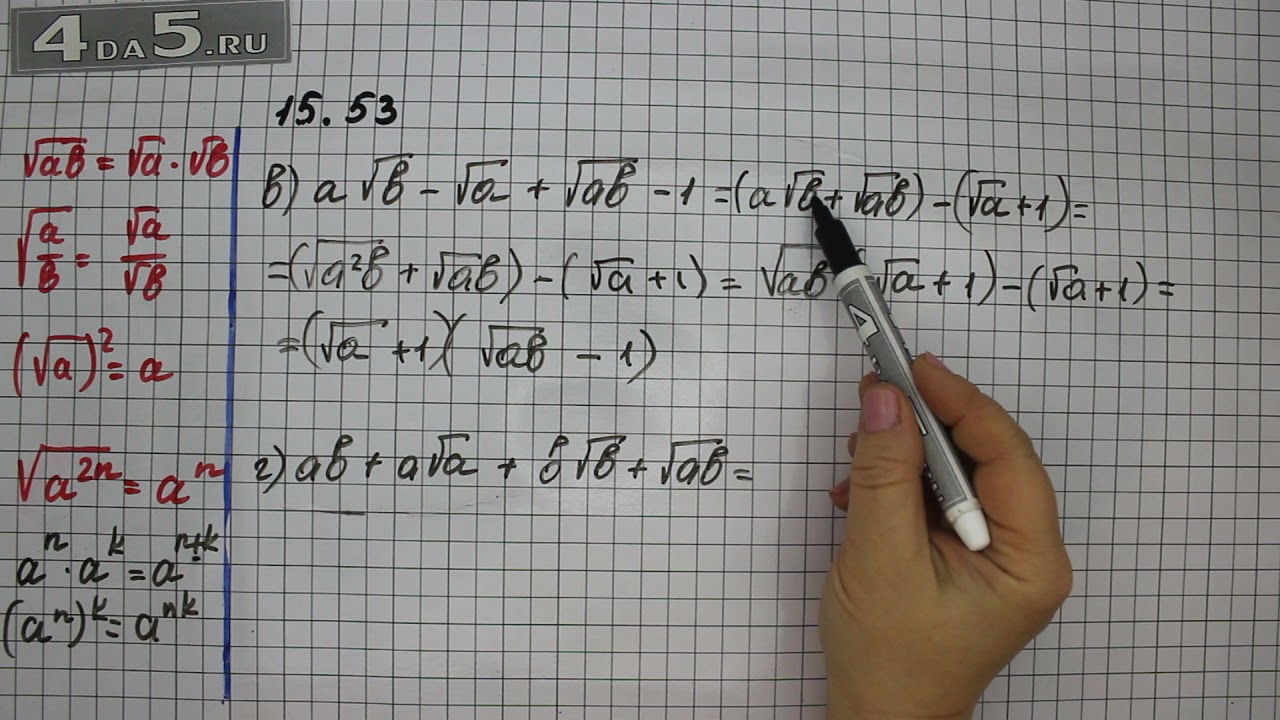 4DA5.RU
15.53
√ab = √a · √b
√a/b = √a/√b
(√a)² = a
√a²ⁿ = aⁿ
aⁿ · aᵏ = aⁿ⁺ᵏ
(aⁿ)ᵏ = aⁿᵏ
в) a√b − √a + √ab − 1 = (a√b + √ab) − (√a + 1) =
= (√a²b + √ab) − (√a + 1) = √ab (√a + 1) − (√a + 1) =
= (√a + 1)(√ab − 1)
г) ab + a√a + b√b + √ab =